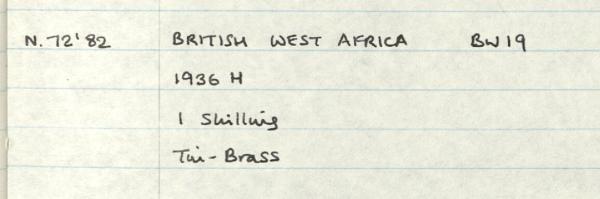 N.72'82 BRITISH WEST AFRICA BW19
1936 H
1 Shilling
Tin-Brass